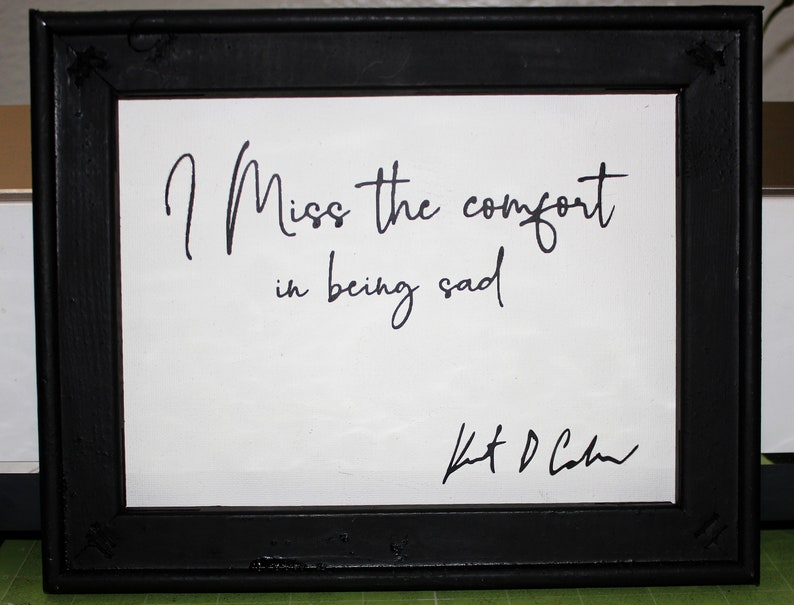 I Miss the comfort
in being sad
Kurt D Cobain